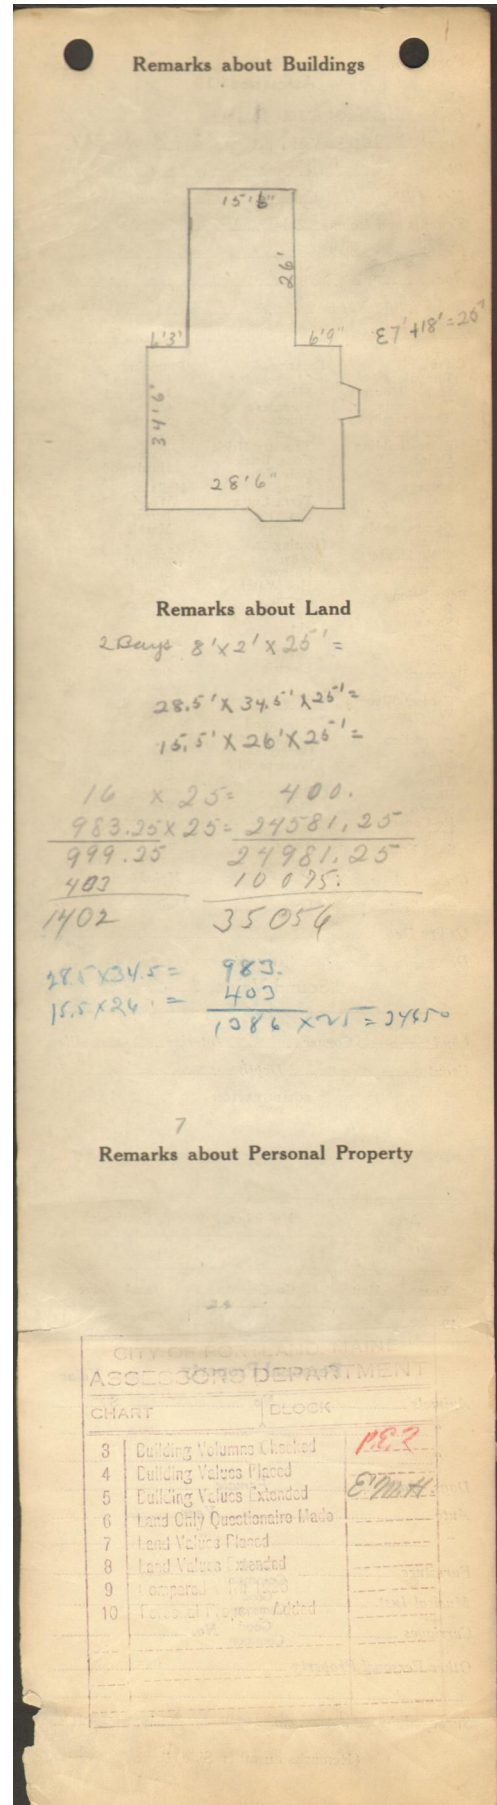 Remarks about Buildings
26'
6'3"
6'9"
34'6"
28'6"
Remarks about Land
2 Bays 8' x 2' x 25' =
28.5' x 34.5' x 25' =
15.5' x 26' x 25' =
16 x 25 = 400.
983.25 x 25 = 24581.25
999.25 24981.25
403 10075.
1402 35056
28.5 x 34.5 = 983.
15.5 x 26 = 403
1386 x 25 = 34650
7
Remarks about Personal Property
CITY OF PORTLAND, MAINE
ASSESSORS DEPARTMENT
CHART BLOCK
3 Building Volumns Checked
4 Building Values Placed
5 Building Values Extended E.M.H.
6 Land Only Questionaire Made
7 Land Values Placed
8 Land Values Extended
9 Compared
10 Personal Property Added